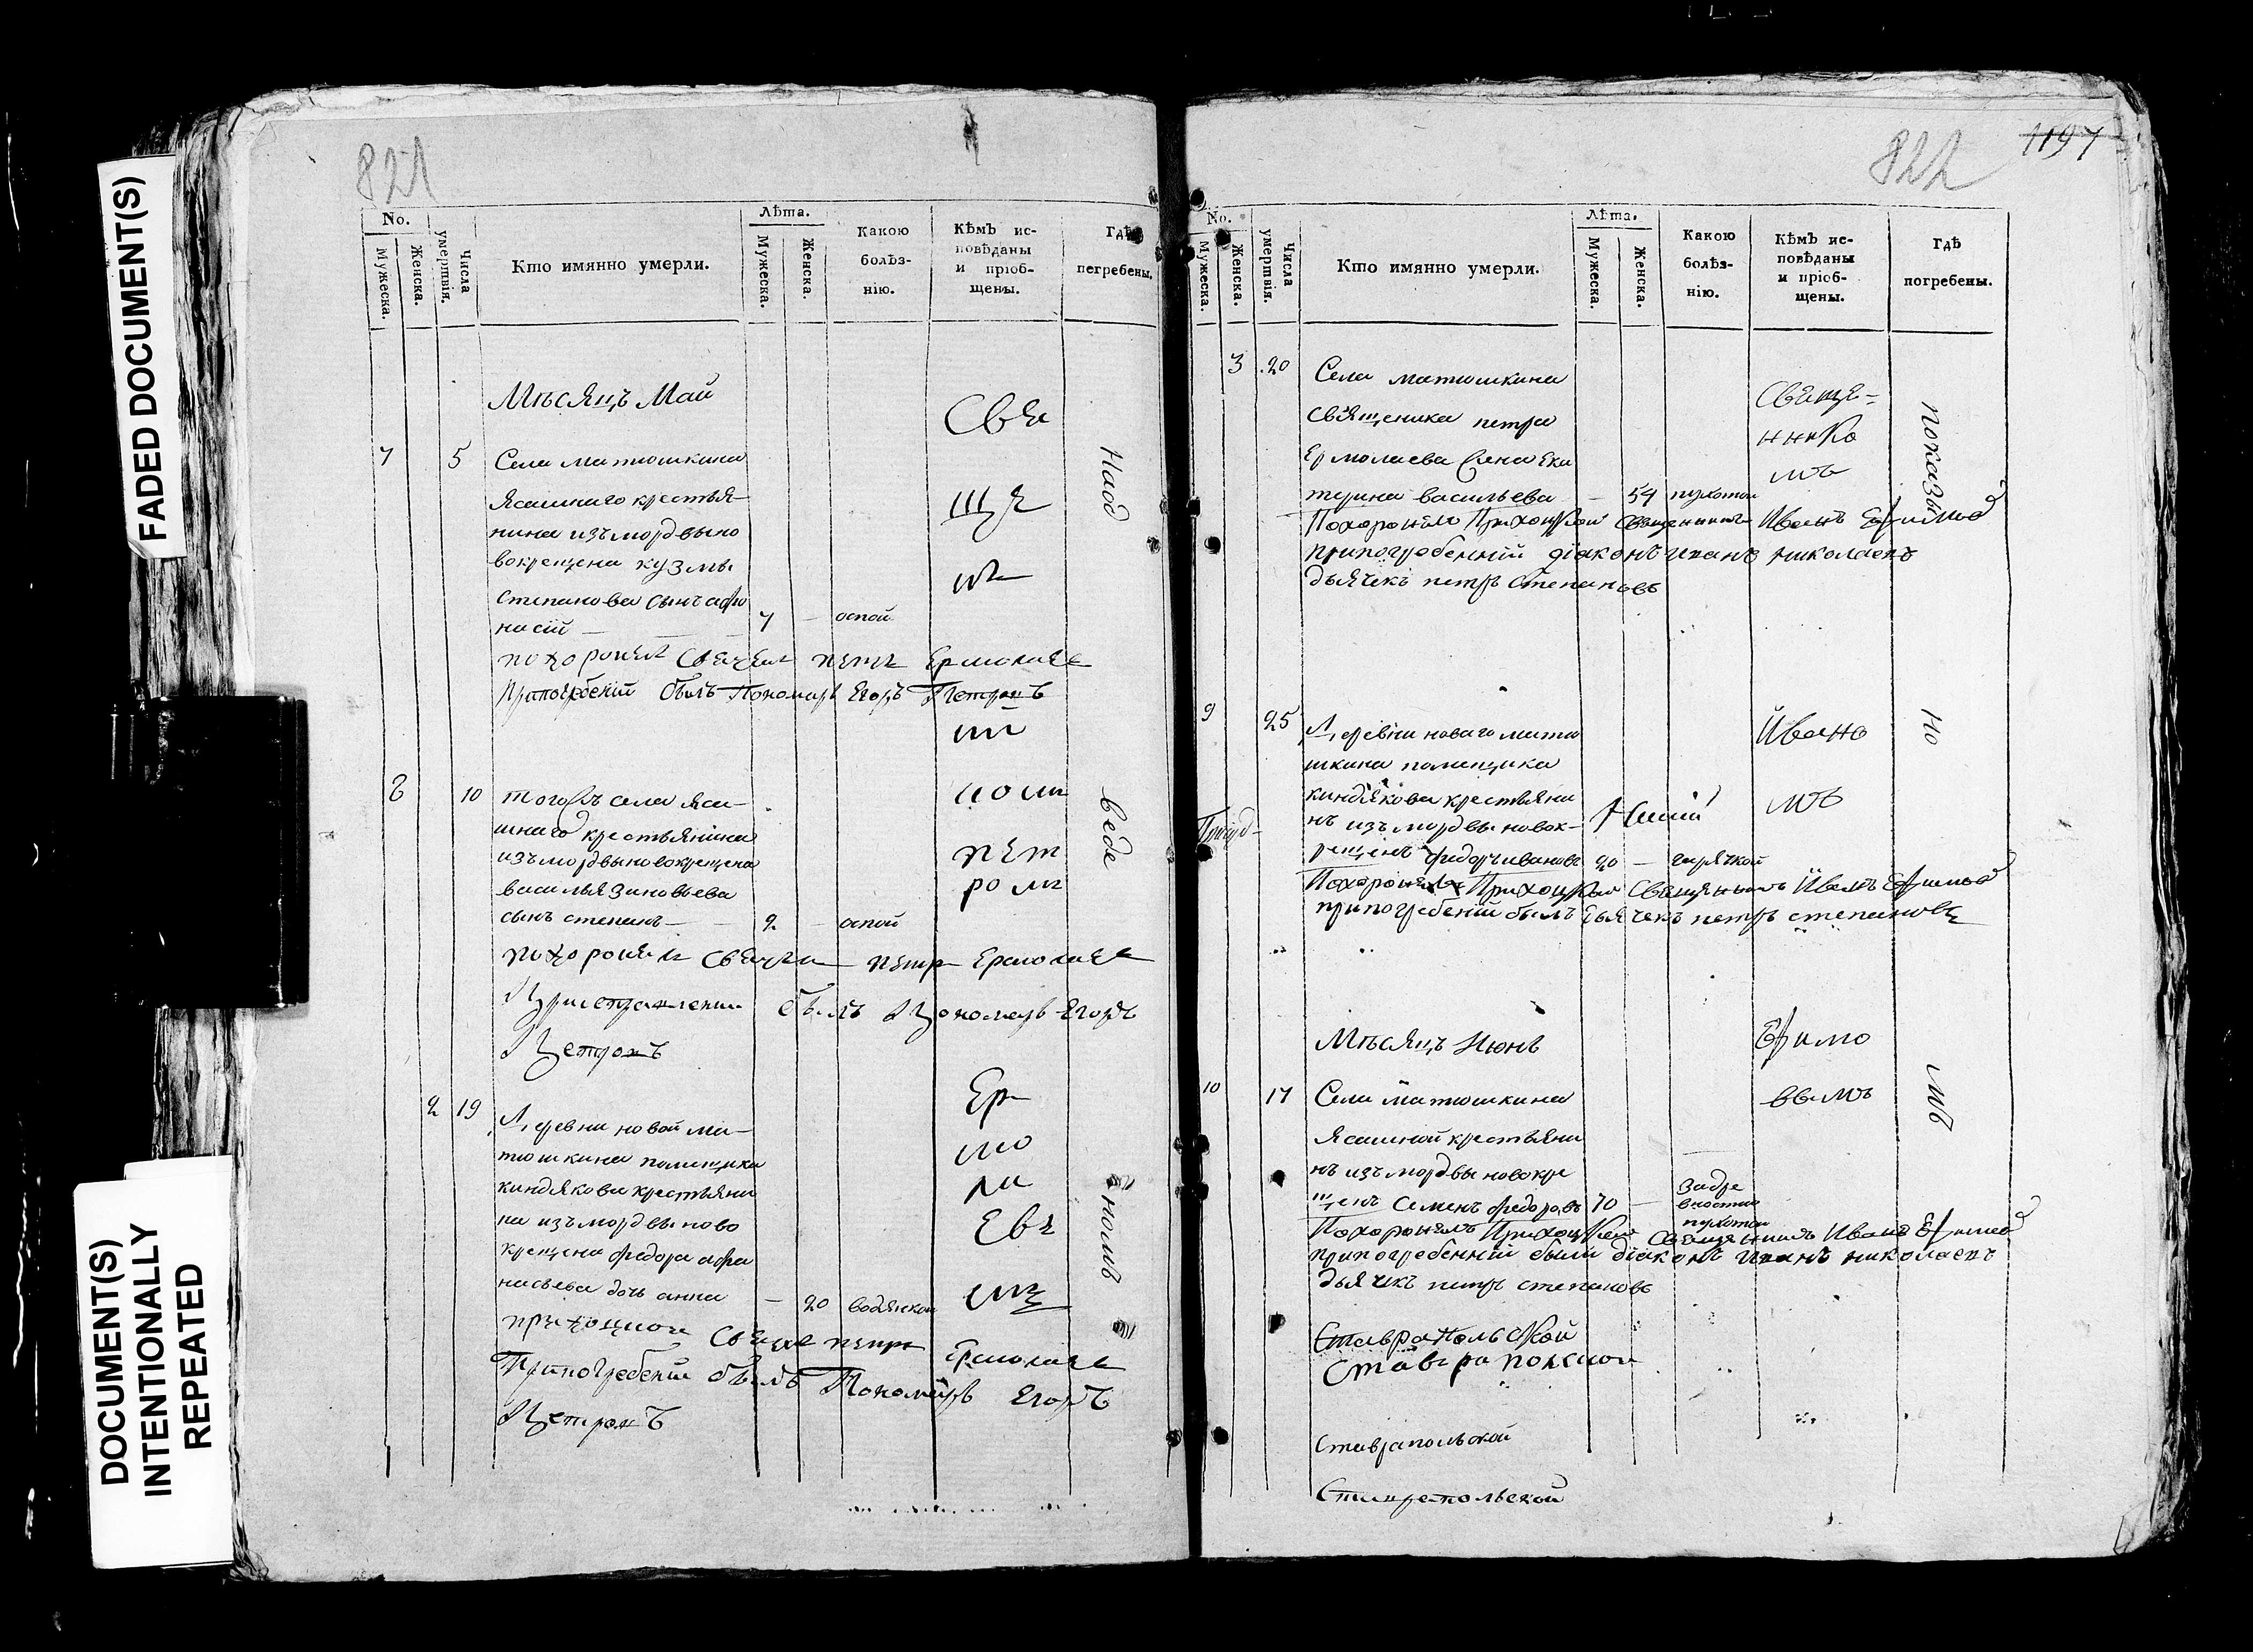 FADED DOCUMENT(S)
DOCUMENT(S)
INTENTIONALLY
REPEATED
821
No.
Мужеска.
Женска.
Числа
умертвія.
Кто имянно умерли.
Лѣта.
Мужеска.
Женска.
Какою
болѣз-
нію.
Кѣмъ ис-
повѣданы
и пріоб-
щены.
Гдѣ
погребены.
Мѣсяцъ Май
7 5 Села матюшкина
ясашнаго крестья-
нина изъ мордвы но
вокрещена кузмы
степанова сынъ афо
насій — 7 — оспой
похоронел свещен петр Ермолаев
при погребеніи былъ Пономарь Егоръ Петровъ
8 10 тогожъ села яса-
шнаго крестьянина
изъ мордвы новокрещена
василья зиновьева
сынъ степанъ — 2 — оспой
похоронел свещен петр Ермолаев
При отправлении былъ Пономарь Егоръ
Петровъ
2 19 Деревни новой ма-
тюшкина помещика
киндякова крестьяни
на изъ мордвы ново
крещена федора афа
насьева дочь анна — 20 водянкой
приходской свещен петр Ермолаев
При погребеніи былъ Пономарь Егоръ
Петровъ
Свя
ще
н
ни
комъ
пет
ромъ
Ер
мо
ла
евы
мъ
На од
веде
ном
822
1197
No.
Мужеска.
Женска.
Числа
умертвія.
Кто имянно умерли.
Лѣта.
Мужеска.
Женска.
Какою
болѣз-
нію.
Кѣмъ ис-
повѣданы
и пріоб-
щены.
Гдѣ
погребены.
3 20 Села матюшкина
священика петра
Ермолаева жена Ека
терина васильева — 54 чихотой
Похоронелъ Приходской Священникъ Иванъ Ефимов
при погребенній діяконъ иванъ николаевъ
дьячекъ петръ степановъ
9 25 Деревни новаго матю
шкина помещика
киндякова крестьяни
нъ изъ мордвы новок-
рещенъ федоръ ивановъ 20 — горячкой
Похоронелъ Приходской Священникъ Иванъ Ефимов
при погребеній былъ дьячекъ петръ степановъ
Мѣсяцъ Июнь
10 17 Села матюшкина
Ясашной крестьяни
нъ изъ мордвы новокре
щенъ Семенъ федоровъ 70 — задре
вностию
чихотой
Похоронелъ Приходской Священникъ Иванъ Ефимов
при погребенній были діяконъ иванъ николаевъ
дьячекъ петръ степановъ
Ставропольской
Ставропольской
Ставрапольской
Ставрепольской
Свяще-
ннико
мъ
Ивано
мъ
Ефимо
вымъ
показы
но
мъ